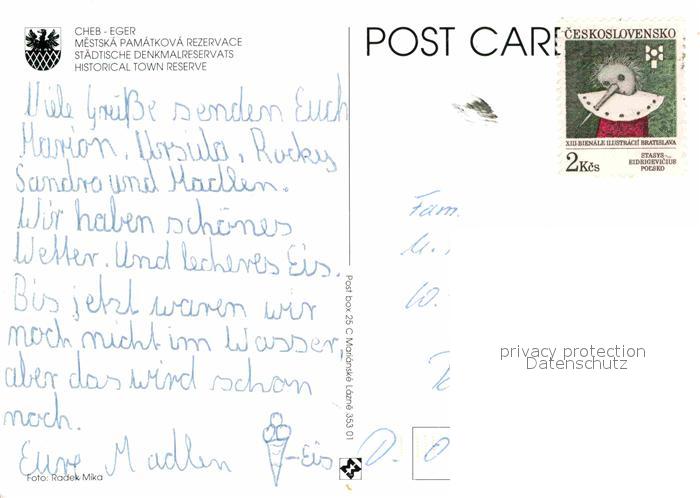 CHEB - EGER
MĚSTSKÁ PAMÁTKOVÁ REZERVACE
STÄDTISCHE DENKMALRESERVATS
HISTORICAL TOWN RESERVE
Viele Grüße senden Euch
Marion, Ursula, Rocky
Sandra und Madlen.
Wir haben schönes
Wetter. Und lecheres Eis.
Bis jetzt waren wir
noch nicht im Wasser,
aber das wird schon
noch.
Eure Madlen
-Eis
Foto: Radek Mika
Post box 25 C Mariánské Lázně 353 01
POST CARD
ČESKOSLOVENSKO
XIII·BIENÁLE ILUSTRÁCIÍ BRATISLAVA
2Kčs
STASYS
EIDRIGEVIČIUS
POĽSKO
Fam.
privacy protection
Datenschutz